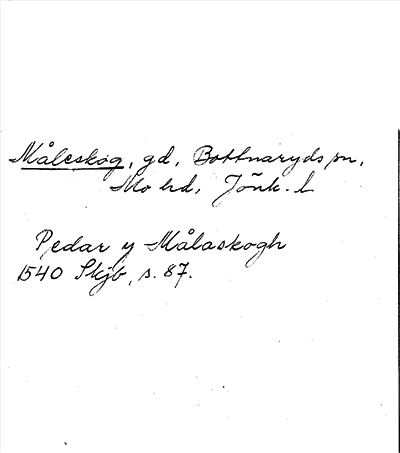 Måleskog, gd, Bottnaryds sn,
Mo hd, Jönk. l
Pedar y Målaskogh
1540 Skjb, s. 87.